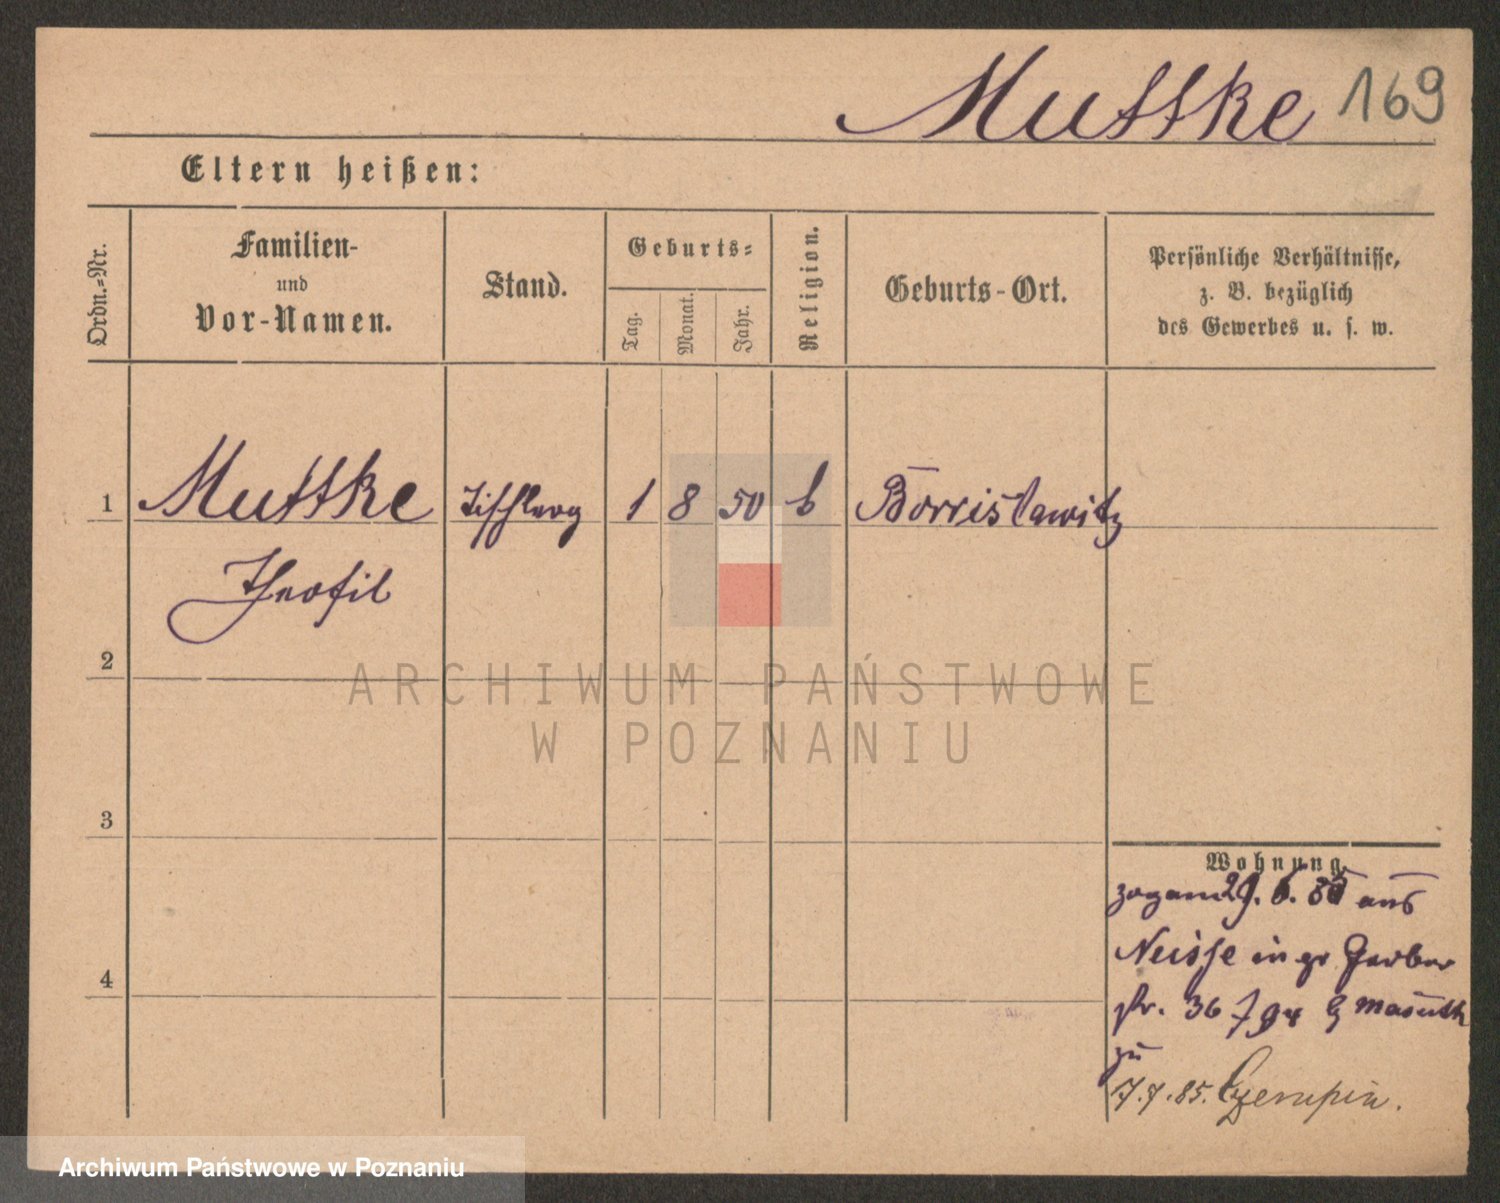 Muttke 169
Eltern heißen:
Ordn.-Nr.
Familien-
und
Vor-Namen.
Stand.
Geburts-
Tag.
Monat.
Jahr.
Religion.
Geburts-Ort.
Persönliche Verhältnisse,
z. B. bezüglich
des Gewerbes u. s. w.
1 Muttke Tischlerg 1 8 50 k Borrislawitz
Theofil
2
ARCHIWUM PAŃSTWOWE
W POZNANIU
3
4
Wohnung.
zogam 29. 6. aus
Neisse in gr Gerber
str. 36
zu
17.7.85. Czempin.
Archiwum Państwowe w Poznaniu